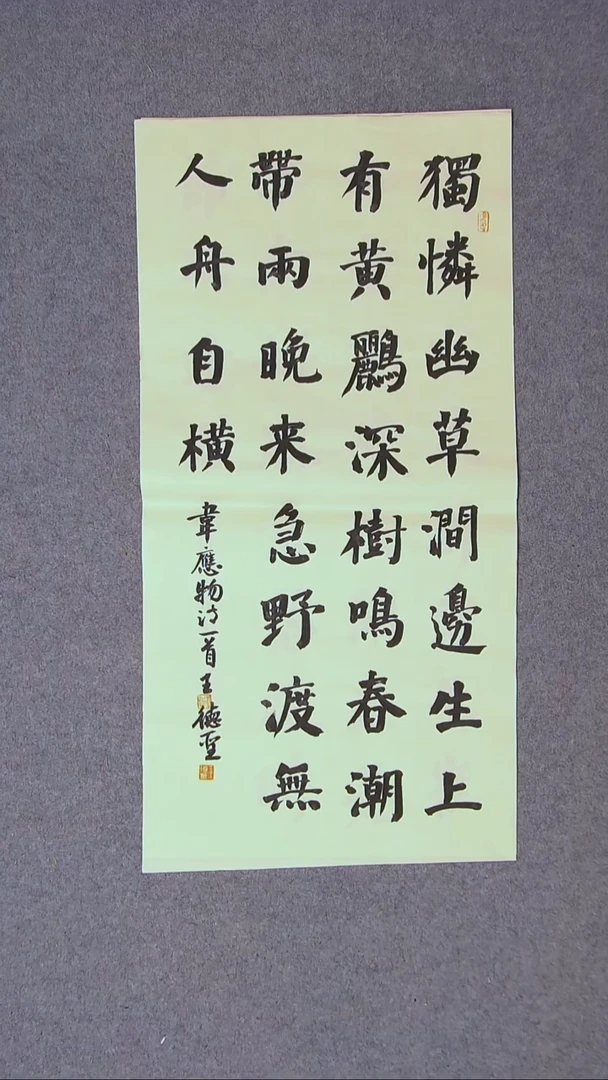 獨憐幽草澗邊生上
有黃鸝深樹鳴春潮
帶雨晚来急野渡無
人舟自橫
韋應物诗一首王德聖